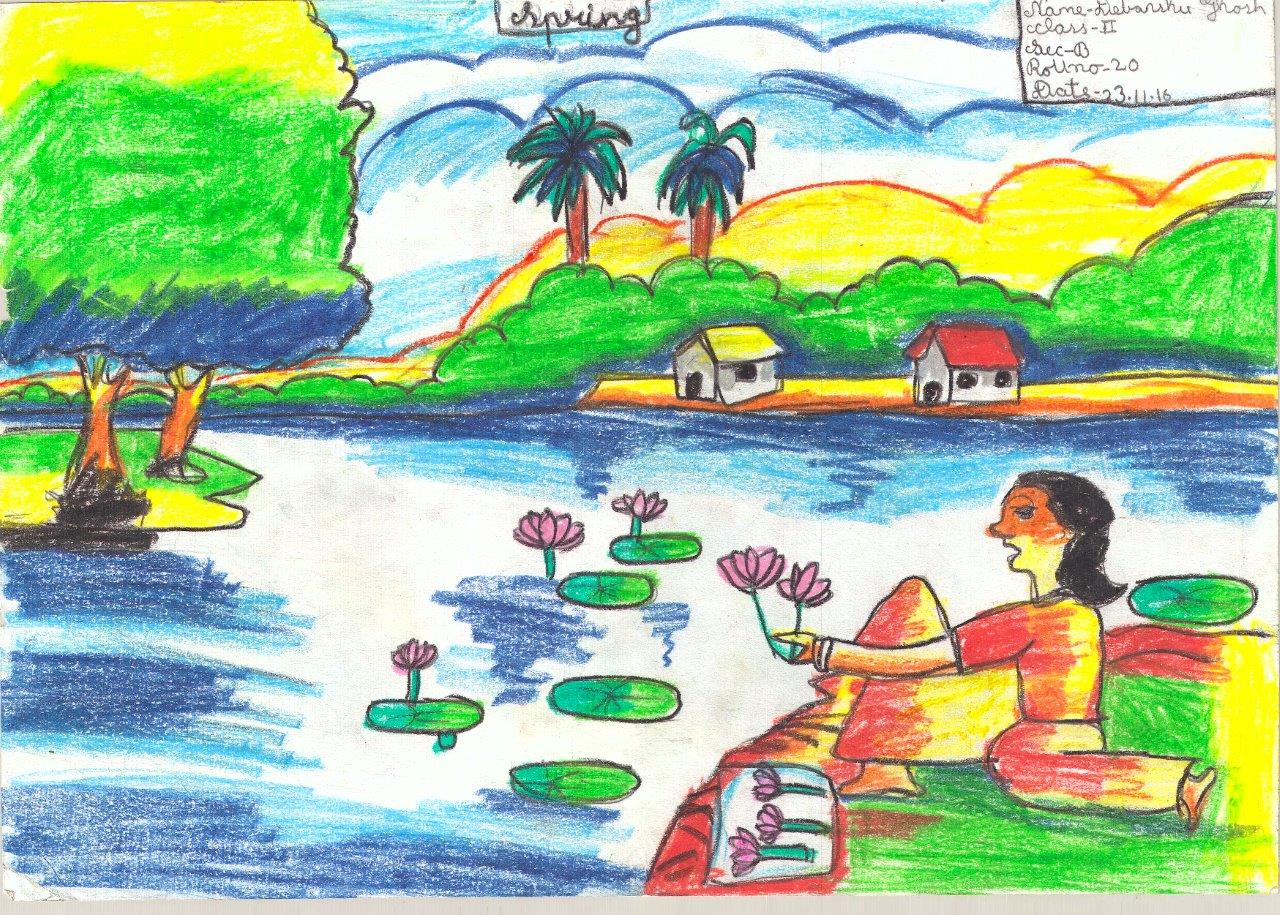 Spring
Name-Debanshu Ghosh
Class-II
Sec-B
Rollno-20
Date-23.11.16